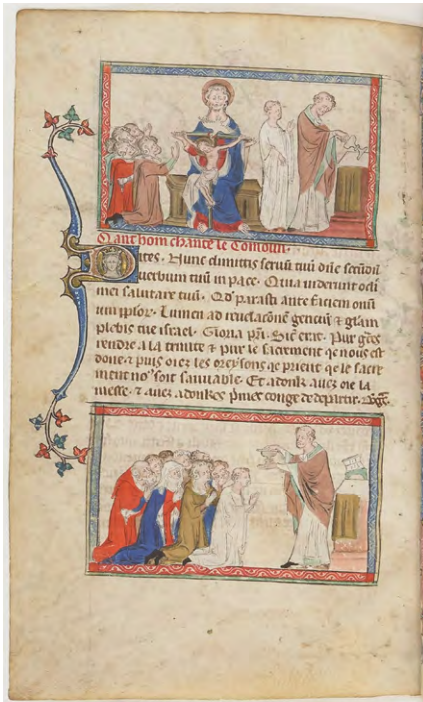 Q ant hom chante le Comoun.
Dites. Nunc dimittis seruū tuū dn̄e scd̄m
uerbum tuū in pace. Quia uiderunt oculi
mei salutare tuū. Qd̄ parasti ante faciem omn̄iū
pplor̄. Lumen ad reuelac̄onē genciū & gl̄am
plebis tue israel. Gloria pr̄i. Sic̄ erat. Pur grc̄es
rendre a la trinite & pur le sacrement qe nous est
done. & puis oiez les oreysons qe prient qe le sacre
ment no⁹ soit sauuable. Et adonk auez oie la
messe. & auez adonkes p̄mes conge de departir.